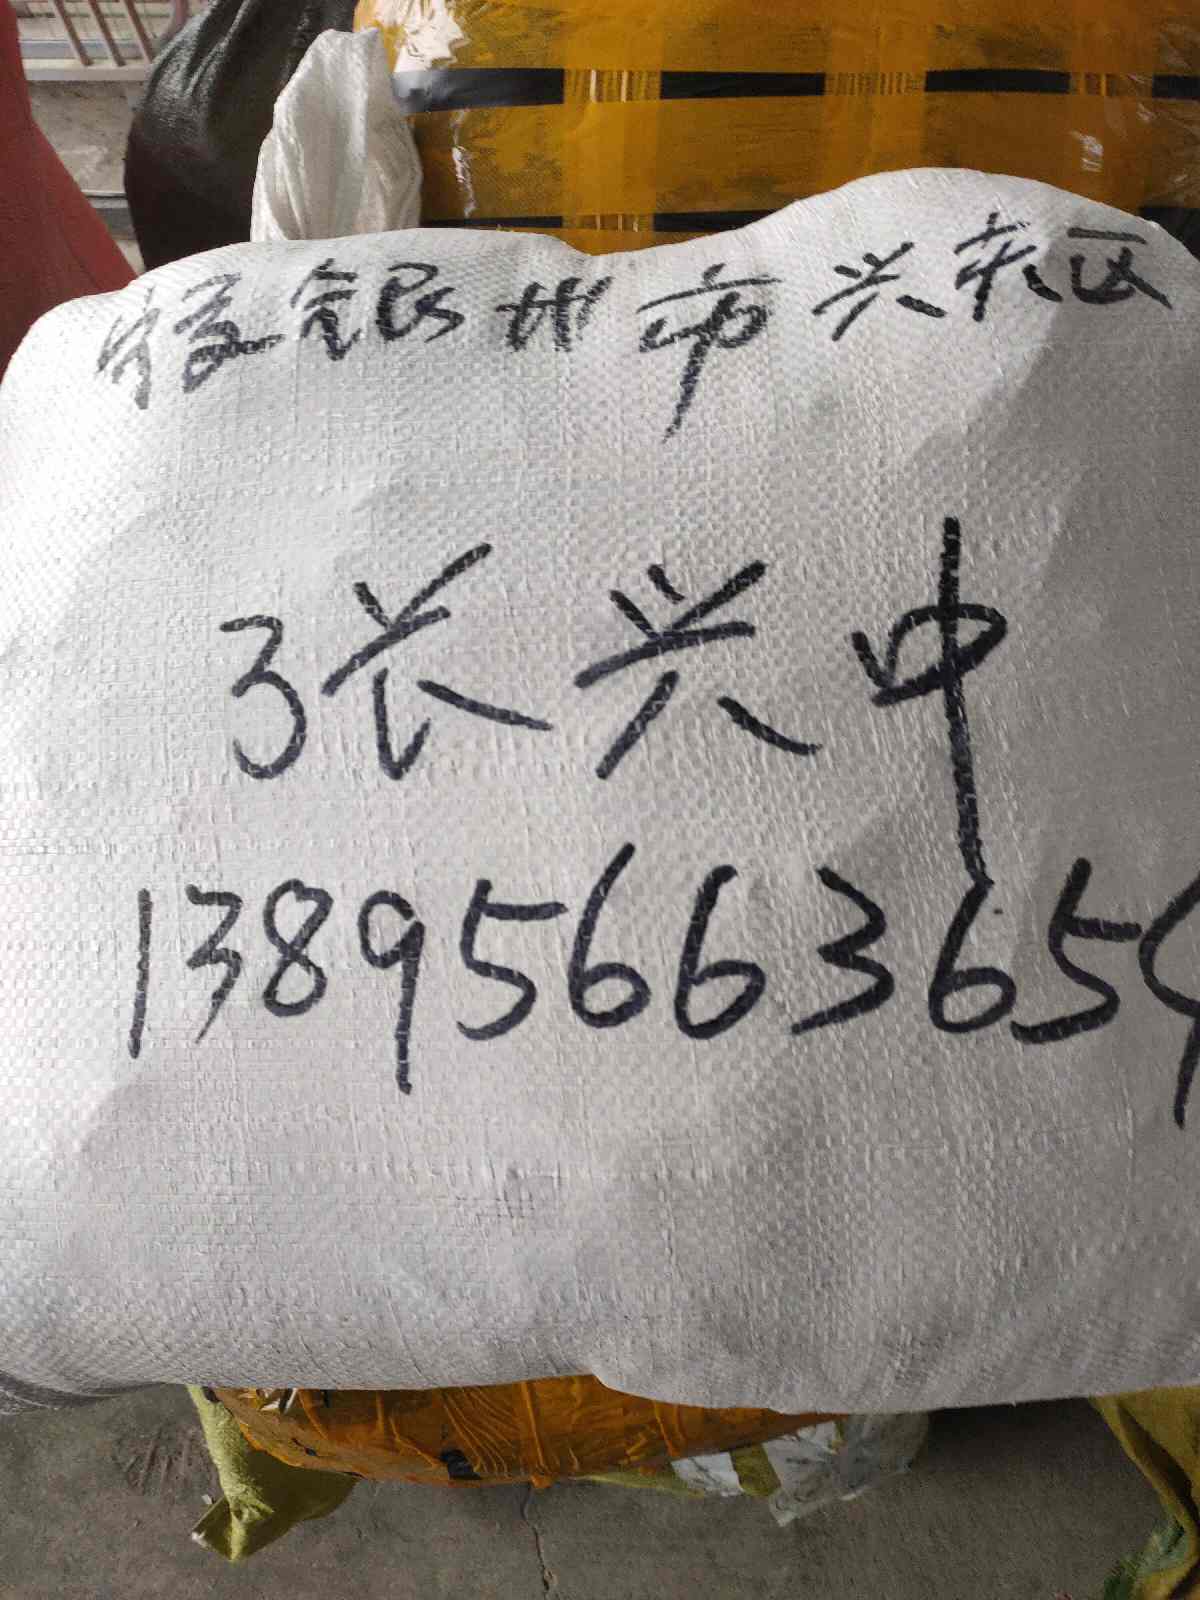 宁夏银川市兴庆区
张兴中
13895663659